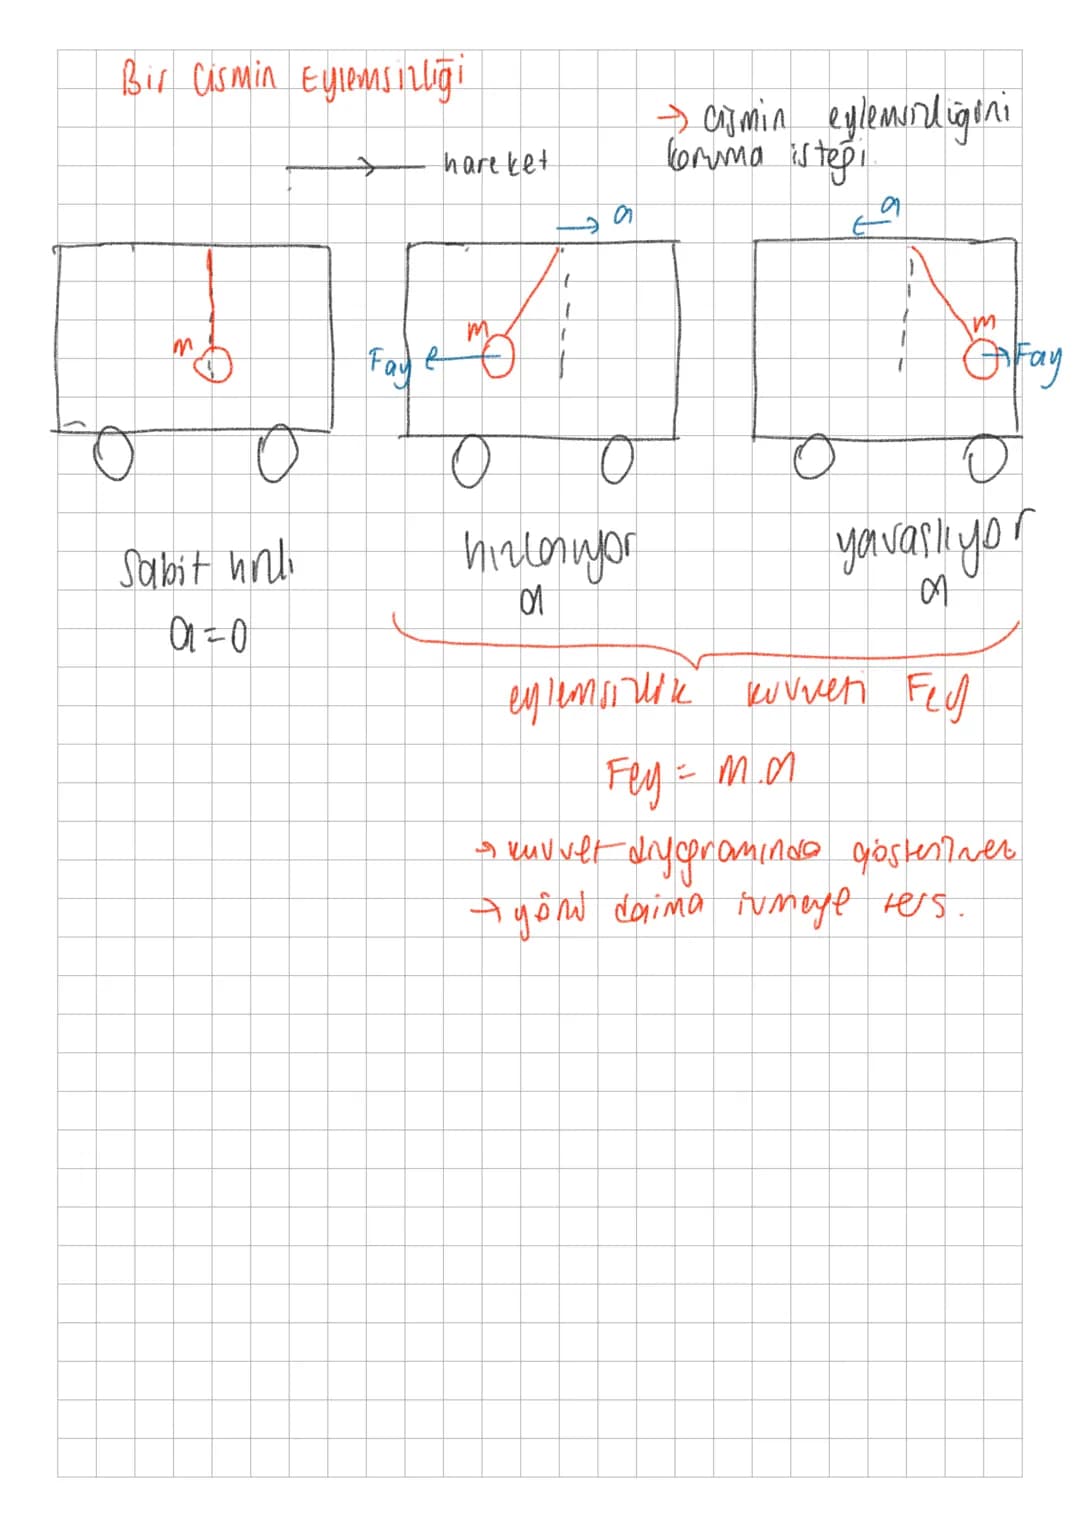 Bir Cismin Eylemsizliği
→ cismin eylemsizliğini
koruma isteği.
hareket
a
a
m
m
m
Fay
Fay
Sabit hızlı
hızlanıyor
yavaşlıyor
a=0
a
a
eylemsizlik kuvveti Fey
Fey = m.a
→ kuvvet diyagramında gösterilmez
→ yönü daima ivmeye ters.